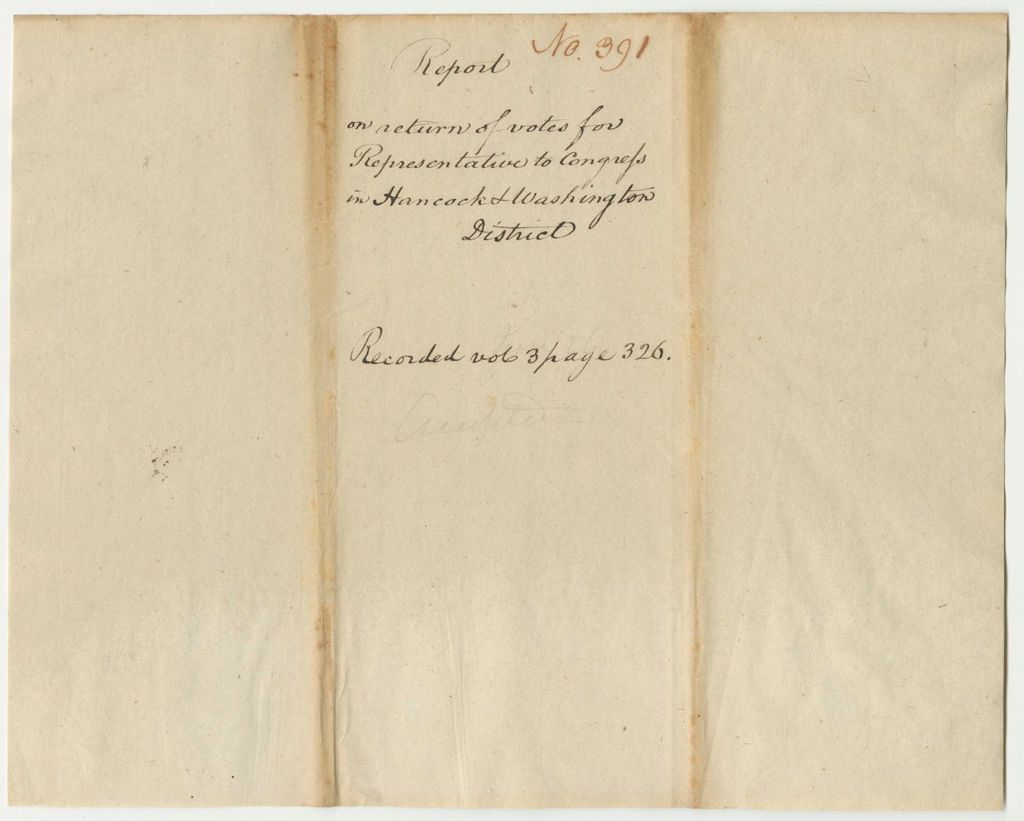 No. 391
Report
on return of votes for
Representative to Congress
in Hancock & Washington
District
Recorded vol 3 page 326.